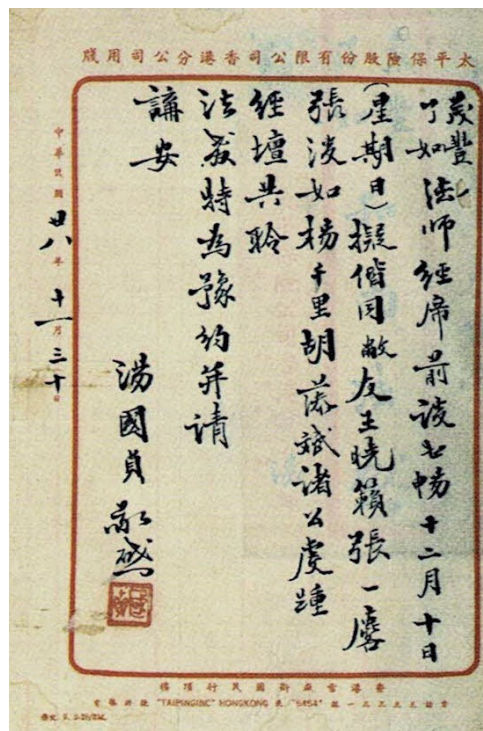 太平保險股份有限公司香港分公司用牋
茂豐
了如法師經席前談甚暢十二月十日
(星期日)擬偕同敝友王曉籟張一麐
張淡如楊千里胡
諸公虔踵
經壇共聆
法教特為豫約并請
講安
湯國貞敬啟
中華民國廿八年十一月三十日
香港雪廠街國民行頂樓
"TAIPINGINC" HONGKONG
"5454"